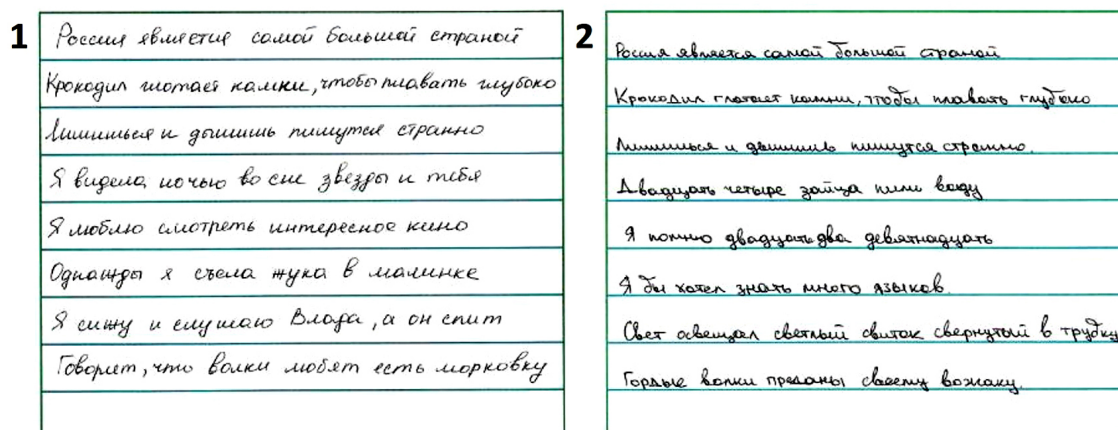 1
Россия является самой большой страной
Крокодил глотает камни, чтобы плавать глубоко
Лишишься и дышишь пишутся странно
Я видела ночью во сне звезды и тебя
Я люблю смотреть интересное кино
Однажды я съела жука в малинке
Я сижу и слушаю Влада, а он спит
Говорят, что волки любят есть морковку
2
Россия является самой большой страной
Крокодил глотает камни, чтобы плавать глубоко
Лишишься и дышишь пишутся странно.
Двадцать четыре зайца пили воду
Я помню двадцать два девятнадцать
Я бы хотел знать много языков.
Свет освещал светлый свиток свернутый в трубку
Гордые волки преданы своему вожаку.